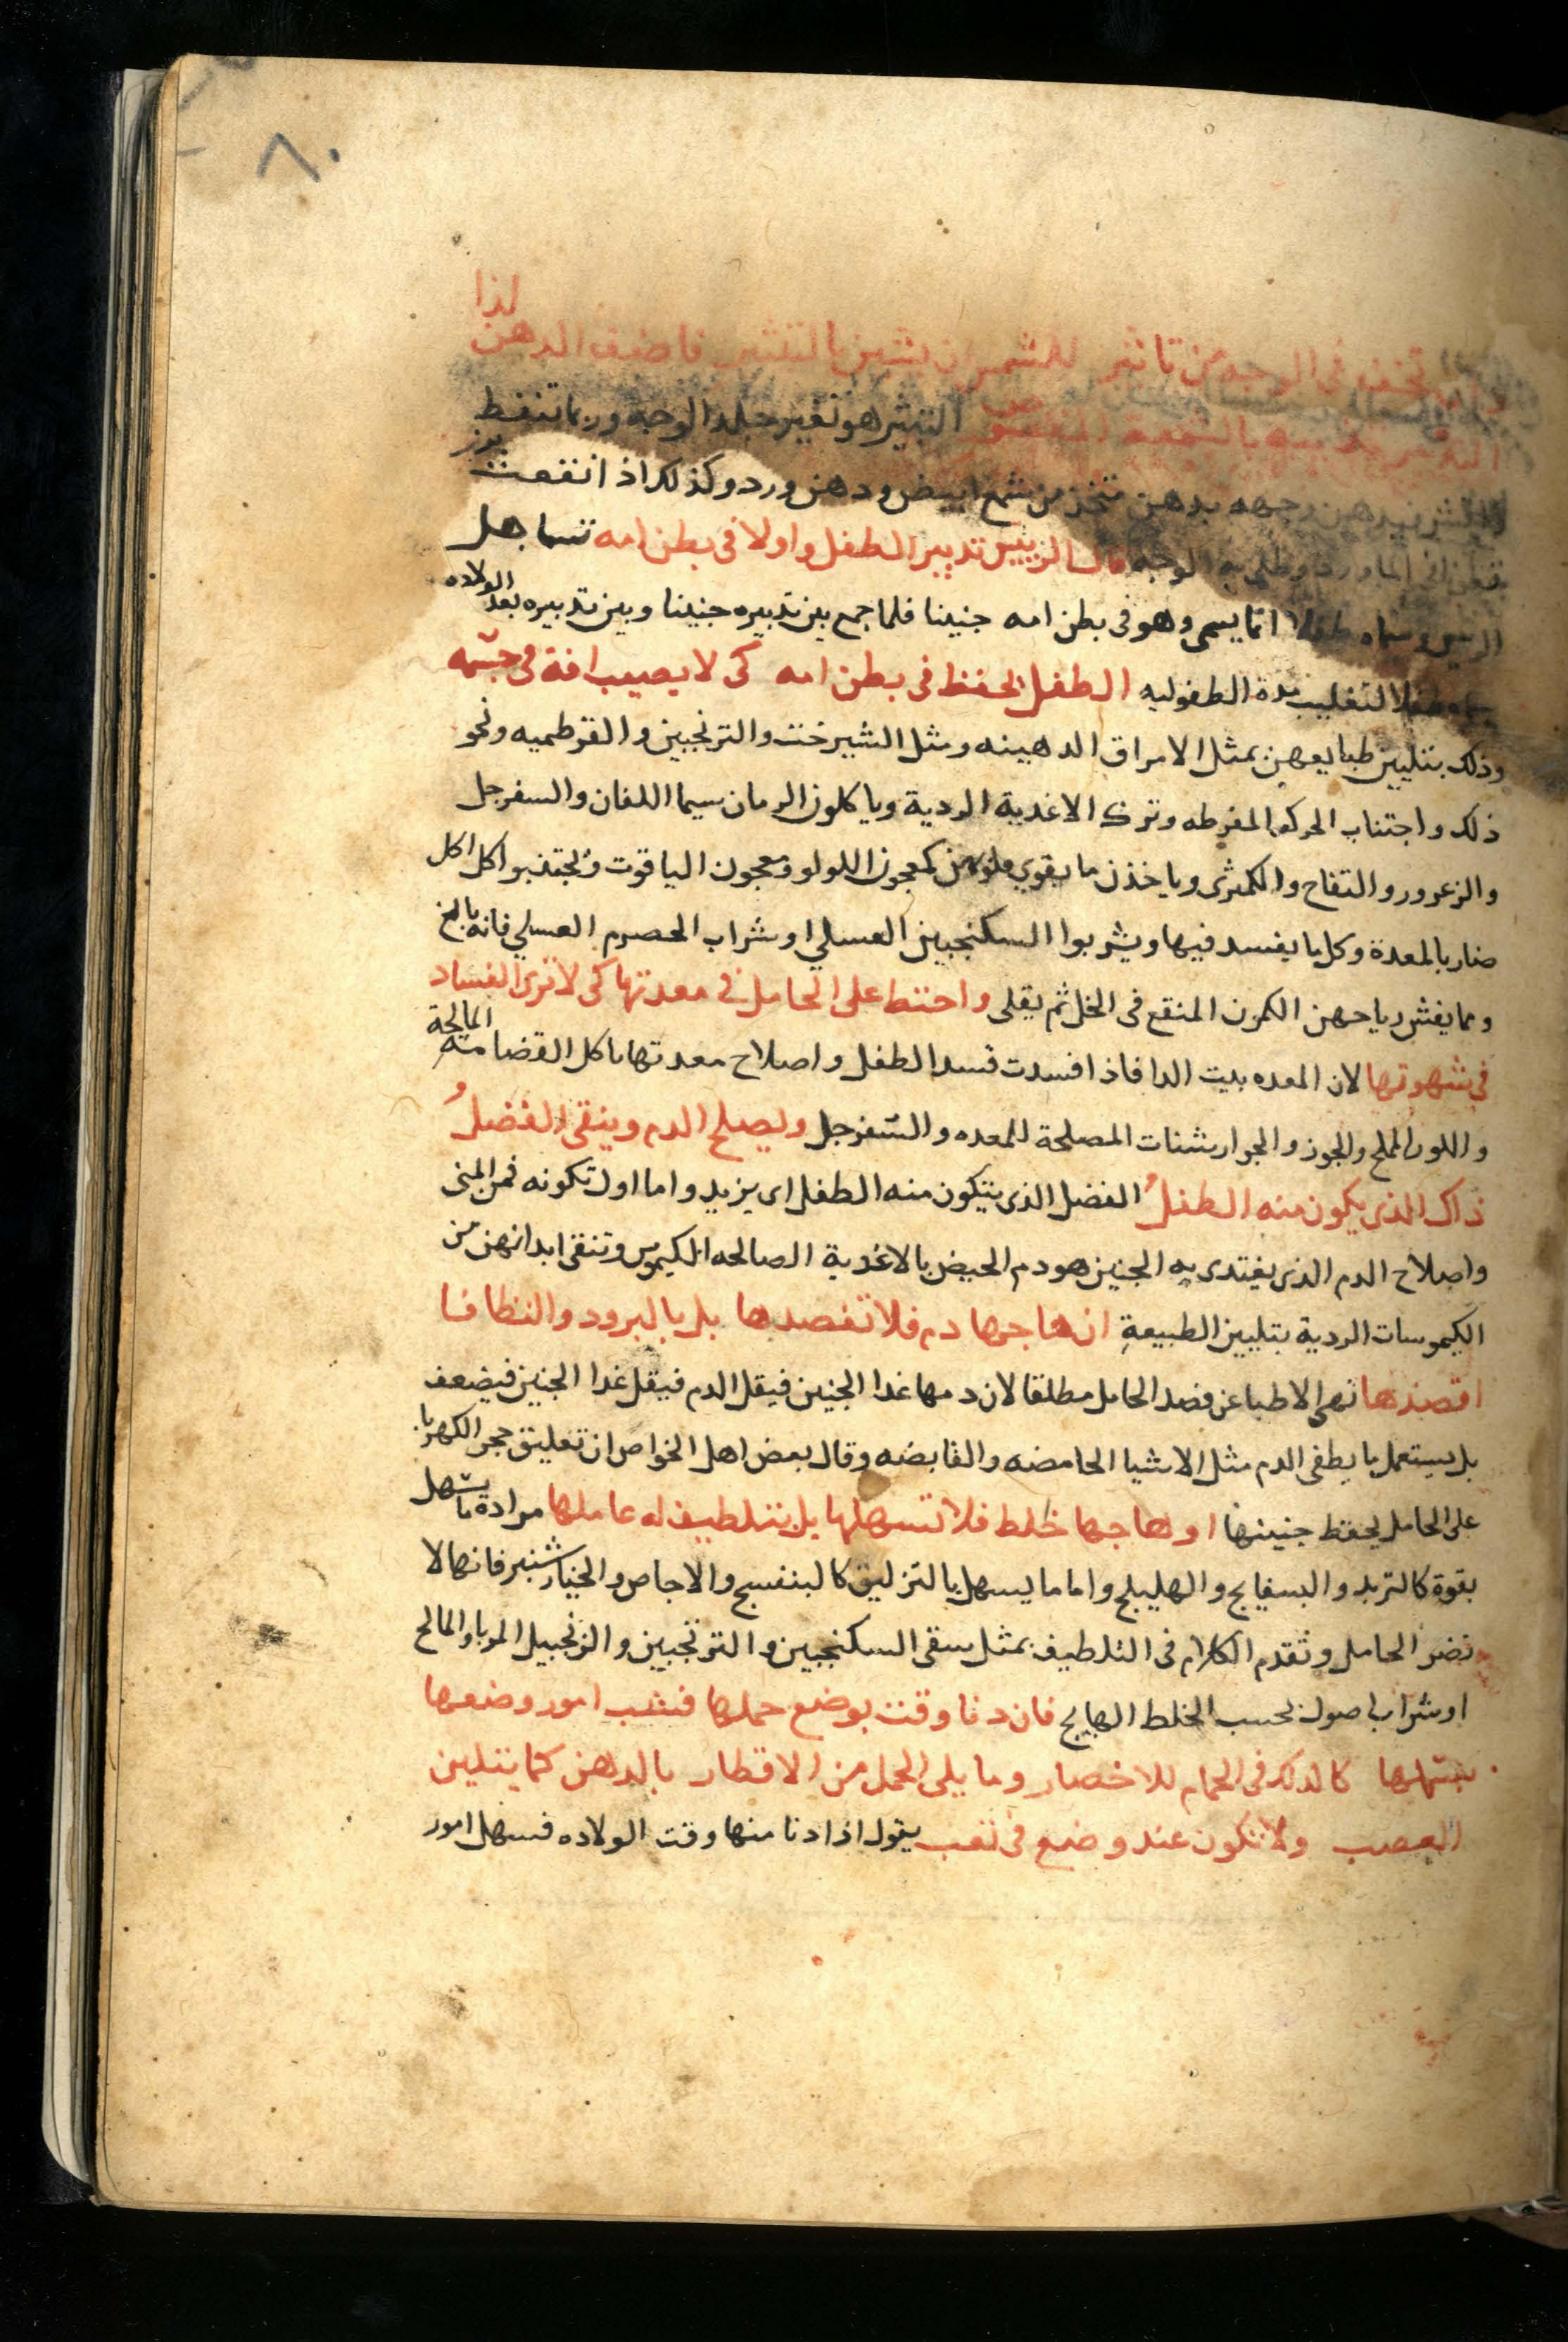 ٨٠
تخف فى الوجه من تاثير للشمس ان يشين بالتغيير فاضف الدهن لذا
بالشمعه التبثير هو تغير جلد الوجه وربما تنفط
فيدهن وجهه بدهن متخذ من شمع ابيض ودهن ورد وكذلك اذ انقعت بزر
الماورد وطلى به الوجه قال الرييس تدبير الطفل واولا فى بطن امه تساهل
الرييس وسماه طفلا انما يسمى وهو فى بطن امه جنينا فلما جمع بين تدبيره جنينا وبين تدبيره بعد الولاده
طفلا لتغليب مدة الطفوليه الطفل يحفظ فى بطن امه كى لا يصيب افة فى جسمه
وذلك بتليين طبايعهن بمثل الامراق الدهينه ومثل الشيرخت والترنجبين والقرطميه ونحو
ذلك واجتناب الحركه المفرطه وترك الاغدية الردية وياكلون الرمان سيما اللفان والسفرجل
والزعرور والتفاح والكمثرى وياخذن ما يقوى قلوبهن كمعجون اللولو ومعجون الياقوت ويجتنبوا كل اكل
ضار بالمعدة وكلما يفسد فيها ويشربوا السكنجبين العسلي او شراب الحصرم العسلي فانه بالغ
ومما يفش رياحهن الكمون المنقع فى الخل ثم يقلى واحتط على الحامل فى معدتها كى لا ترى الفساد
فى شهوتها لان المعده بيت الدا فاذا فسدت فسد الطفل واصلاح معدتها باكل القضامه المالحة
واللوز المملح والجوز والجوارشنات المصلحة للمعده والسفرجل وليصلح الدم وينقى الفضل
ذاك الذى يكون منه الطفل الفضل الذى يتكون منه الطفل اى يزيد واما اول تكونه فمن المنى
واصلاح الدم الذى يغتدى به الجنين هو دم الحيض بالاغدية الصالحه الكيموس وتنقى ابدانهن من
الكيموسات الردية بتليين الطبيعة ان هاجها دم فلا تفصدها بل بالبرود والنطافا
اقصدها نهى الاطبا عن فصد الحامل مطلقا لان دمها غدا الجنين فيقل الدم فيقل غدا الجنين فيضعف
بل يستعمل ما يطفى الدم مثل الاشيا الحامضه والقابضه وقال بعض اهل الخواص ان تعليق حجر الكهربا
على الحامل يحفظ جنينها او هاجها خلط فلا تسهلها بل بتلطيف له عاملها مراده ما يسهل
بقوة كالتربد والبسفايج والهليلج واما ما يسهل بالتزليق كالبنفسج والاجاص والخيار شنبر فانها لا
تضر الحامل وتقدم الكلام فى التلطيف بمثل سقى السكنجبين والترنجبين والزنجبيل المربا والمالح
او شراب اصول بحسب الخلط الهايج فان دنا وقت بوضع حملها فشب امور وضعها
بسهلها كالدلك فى الحمام للاخصار وما يلى الحمل من الاقطار بالدهن كما يتلين
العصب ولا تكون عند وضع فى تعب يقول اذا دنا منها وقت الولاده فسهل امور